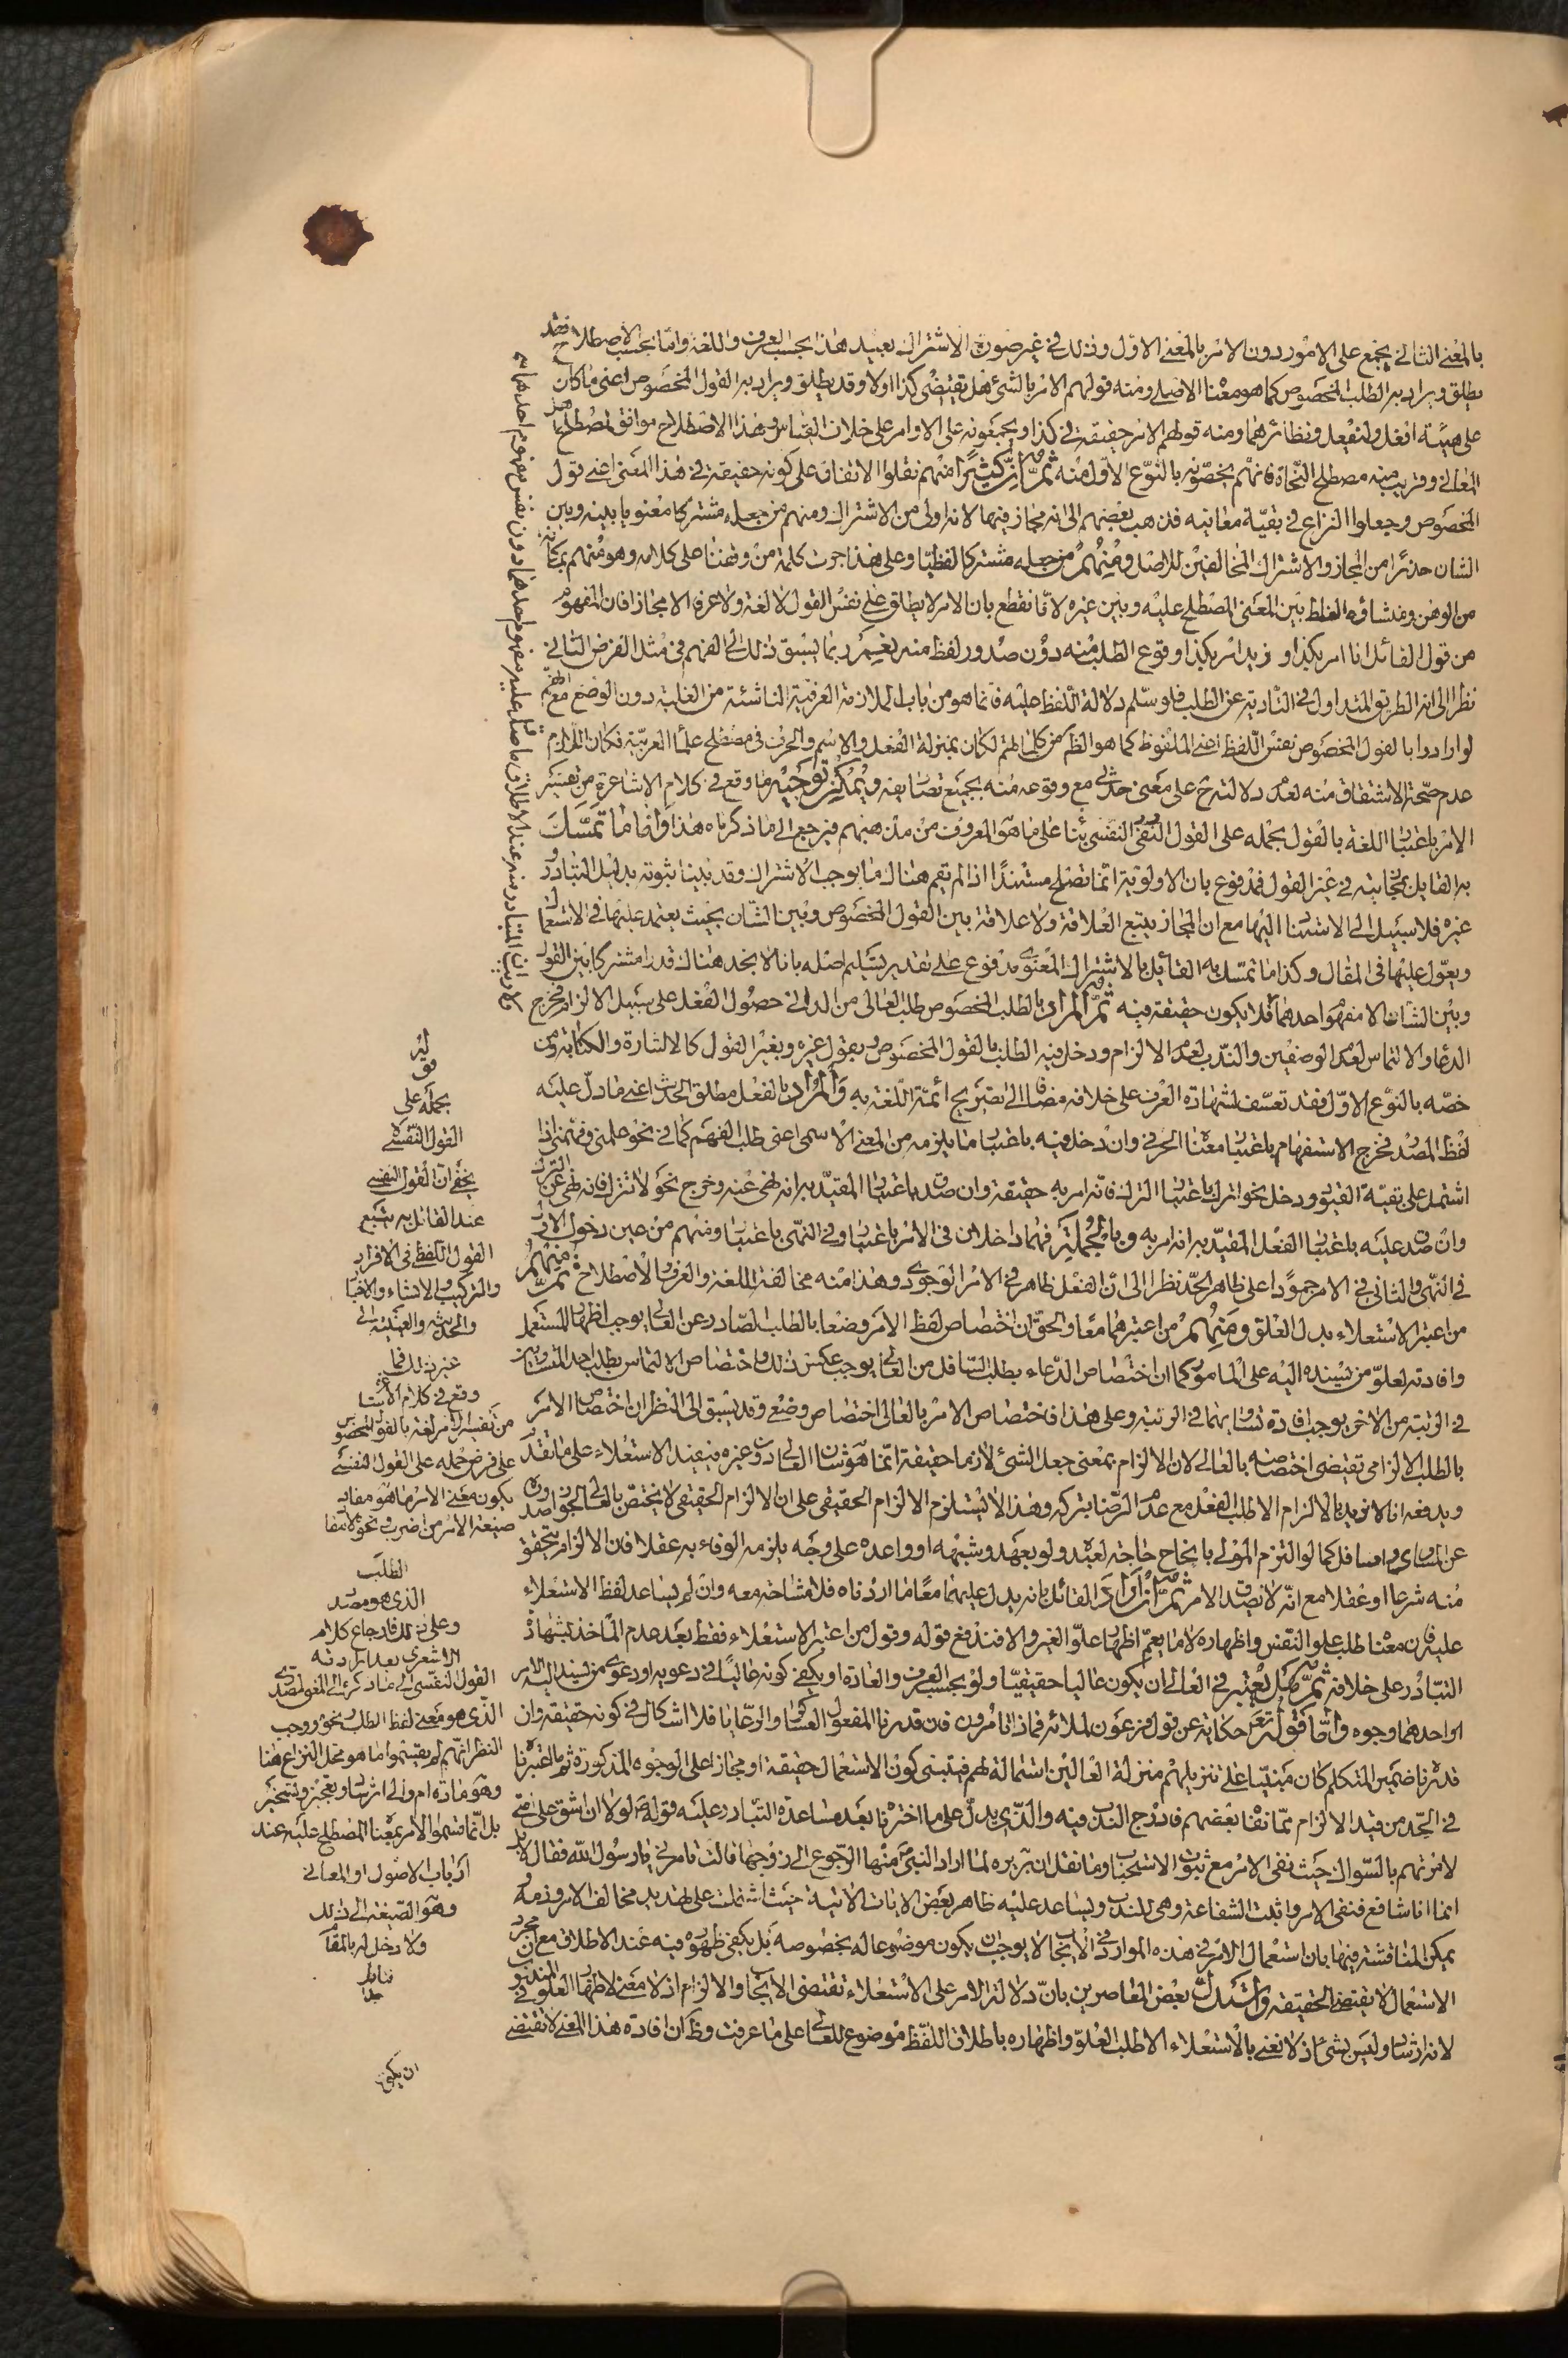 بالمعنى الثانى يجمع على الامور دون الامر بالمعنى الاول وذلك فى غير صورة الاشتراك بعيد هذا بحسب العرف واللغة واما بحسب الاصطلاح فقد
يطلق ويراد به الطلب المخصوص كما هو معناه الاصلى ومنه قولهم الامر بالشئ هل يقتضى كذا اولا وقد يطلق ويراد به القول المخصوص اعنى ما كان
على هيئة افعل ولتفعل ونظائرهما ومنه قولهم الامر حقيقة فى كذا ويجمعونه على الاوامر على خلاف القياس وهذا الاصطلاح موافق لمصطلح
المعانى وقريب منه مصطلح النحاة فانهم يخصونه بالنوع الاول منه ثم ان كثيرا منهم نقلوا الاتفاق على كونه حقيقة فى هذا المعنى اعنى قول
المخصوص وجعلوا النزاع فى بقية معانيه فذهب بعضهم الى انه مجاز فيها لانه اولى من الاشتراك ومنهم من جعله مشتركا معنويا بينه وبين
الشان حذرا من المجاز والاشتراك المخالفين للاصل ومنهم من جعله مشتركا لفظيا وعلى هذا جرت كلمة من وقفنا على كلامه وهو منهم بمكانة
من الوهن ومنشاؤه الغلط بين المعنى المصطلح عليه وبين غيره لانا نقطع بان الامر لا يطلق على نفس القول لا لغة ولا عرفا الا مجازا فان المفهوم
من قول القائل انا امر بكذا او زيد امر بكذا وقوع الطلب منه دون صدور لفظ منه نعم ربما يسبق ذلك الى الفهم فى مثل الفرض الثانى
نظرا الى انه الطريق المتداول فى التادية عن الطلب فلو سلم دلالة اللفظ عليه فانما هو من باب الملازمة العرفية الناشئة من الغلبة دون الوضع مع انهم
لو ارادوا بالقول المخصوص نفس اللفظ اعنى الملفوظ كما هو الظ من كلماتهم لكان بمنزلة الفعل والاسم والحرف فى مصطلح علماء العربية فكان اللازم
عدم صحة الاشتقاق منه لعدم دلالته ح على معنى حدثى مع وقوعه منه بجميع تصاريفه ويمكن توجيه ما وقع فى كلام الاشاعرة من تفسير
الامر باعتبار اللغة بالقول بحمله على القول النفسى بناء على ما هو المعروف من مذهبهم فيرجع الى ما ذكرناه هذا واما ما تمسك
به القايل بمجازيته فى غير القول فمدفوع بان الاولوية انما تصلح مستندا اذا لم يقم هناك ما يوجب الاشتراك وقد بينا ثبوته بدليل التبادر و
غيره فلا سبيل الى الاستناد اليها مع ان المجاز يتبع العلاقة ولا علاقة بين القول المخصوص وبين الشان بحيث يعتمد عليها فى الاستعمال
ويعول عليها فى المقال وكذا ما تمسك به القائل بالاشتراك المعنوى مدفوع على تقدير تسليم اصله بانا لا نجد هناك قدرا مشتركا بين القول
وبين الشان الا مفهوم احدهما فلا يكون حقيقة فيه ثم المراد بالطلب المخصوص طلب العالى من الدانى حصول الفعل على سبيل الالزام فخرج
الدعاء والالتماس لعدم الوصفين والندب لعدم الالزام ودخل فيه الطلب بالقول المخصوص وبقول غيره وبغير القول كالاشارة والكتابة ومن
خصه بالنوع الاول فقد تعسف لشهادة العرف على خلافه مضافا الى تصريح ائمة اللغة به والمراد بالفعل مطلق الحدث اعنى ما دل عليه
لفظ المصدر فخرج الاستفهام باعتبار معناه الحرفى وان دخل فيه باعتبار ما يلزمه من المعنى الاسمى اعنى طلب الفهم كما فى نحو علمنى وفهمنى اذا
اشتمل على بقية القيود ودخل نحو اترك باعتبار الترك فانه امر به حقيقة وان صدق باعتبار المقيد به انه نهى عنه وخرج نحو لا تترك فانه نهى عن الترك
وان صدق عليه باعتبار الفعل المقيد به انه امر به وبالجملة فهما داخلان فى الامر باعتبار وفى النهى باعتبار ومنهم من عين دخول الاول
فى النهى والثانى فى الامر جمودا على ظاهر الحد نظرا الى ان الفعل ظاهر فى الامر الوجودى وهذا منه مخالفة اللغة والعرف والاصطلاح ثم منهم
من اعتبر الاستعلاء بدل العلو ومنهم من اعتبرهما معا والحق ان اختصاص لفظ الامر وضعا بالطلب الصادر عن العالى يوجب اظهار المستعمل
وافادته لعلو من يسنده اليه على المامور كما ان اختصاص الدعاء بطلب السافل من العالى يوجب عكس ذلك واختصاص الالتماس بطلب احد المتساويين
فى الرتبة من الاخر يوجب افادة تساويهما فى الرتبة وعلى هذا فاختصاص الامر بالعالى اختصاص وضعى وقد يسبق الى النظر ان اختصاص الامر
بالطلب الالزامى تقتضى اختصاصه بالعالى لان الالزام بمعنى جعل الشئ لازما حقيقة انما هو شان العالى دون غيره فيفيد الاستعلاء على ما تقدم
ويدفعه انا لا نريد بالالزام الا طلب الفعل مع عدم الرضا بتركه وهذا لا يستلزم الالزام الحقيقى على ان الالزام الحقيقى لا يختص بالعالى لجواز صدوره
عن المساوى والسافل كما لو التزم المولى بانجاح حاجة لعبده ولو بعهد وشبهه او واعده على وجه يلزمه الوفاء به عقلا فان الالزام يتحقق
منه شرعا او عقلا مع انه لا يصدق الامر ثم ان اراد القائل بانه يدل عليهما معا ما اردناه فلا مشاحة معه وان لم يساعد لفظ الاستعلاء
عليه فان معناه طلب علو النفس واظهاره لا ما يعم اظهار علو الغير والا فندفع قوله وقول من اعتبر الاستعلاء فقط بعد عدم المأخذ بشهادة
التبادر على خلافه ثم هل يعتبر فى العالى ان يكون عاليا حقيقيا ولو بحسب العرف والعادة او يكفى كونه عاليا فى دعويه او دعوى من يسند اليه الامر
او احدهما وجوه واما قوله تع حكاية عن قول فرعون لملائه فماذا تامرون فان قدرنا المفعول العساكر والرعايا فلا اشكال فى كونه حقيقة وان
قدرنا ضمير المتكلم كان مبنيا على تنزيلهم منزلة العالين استمالة لهم فيبتنى كون الاستعمال حقيقة او مجازا على الوجوه المذكورة ثم ما اعتبرنا
فى الحد من قيد الالزام مما نفاه بعضهم فادرج الندب فيه والذى يدل على ما اخترنا بعد مساعدة التبادر عليه قوله ص لولا ان اشق على امتى
لامرتهم بالسواك حيث نفى الامر مع ثبوت الاستحباب وما نقل ان بريره لما اراد النبى ص منها الرجوع الى زوجها قالت تامرنى يا رسول الله فقال لا بل
انما انا شافع فنفى الامر واثبت الشفاعة وهى للندب ويساعد عليه ظاهر بعض الايات الاتية حيث اشتملت على تهديد مخالف الامر وذمه و
يمكن المناقشة فيها بان استعمال الامر فى هذه الموارد فى الايجاب لا يوجب ان يكون موضوعا له بخصوصه بل يكفى ظهوره فيه عند الاطلاق مع ان مجرد
الاستعمال لا يقتضى الحقيقة واستدل بعض المعاصرين بان دلالة الامر على الاستعلاء تقتضى الايجاب والالزام اذ لا معنى لاظهار العلو فى المندوب
لانه ارشاد وليس بشئ اذ لا نعنى بالاستعلاء الا طلب العلو واظهاره باطلاق اللفظ موضوع للعالى على ما عرفت وظ ان افادة هذا المعنى لا تقتضى
ان يكون
قوله
بحمله على
القول النفسى
يخفى ان القول النفسى
عند القائل به يتبع
القول اللفظى فى الافراد
والتركيب والانشاء والاخبار
وغير ذلك فما
وقع فى كلام الاشاعرة
من تفسير الامر لغة بالقول المخصوص
على فرض حمله على القول النفسى
يكون معنى الامر ما هو مفاد
صيغة الامر من اضرب ونحوه لا مفاد
الطلب
الذى هو مصدر
وعلى ذلك فارجاع كلام
الاشعرى بعد ارادته
القول النفسى الى ما ذكره الى المعنى المصدرى
الذى هو معنى لفظ الطلب ونحوه ووجب
النظر انهم لم يقيموا ما هو محل النزاع هنا
بل انما فسروا الامر بمعناه المصطلح عليه عند
ارباب الاصول او المعانى
وهو الصيغة الى ذلك
ولا دخل له بالمقام
فتامل
جدا